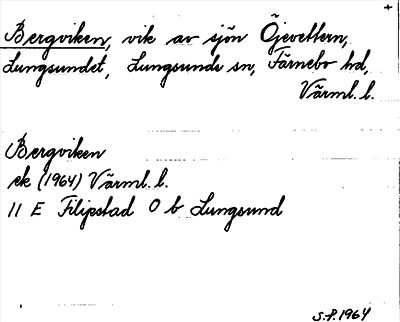 +
Bergviken, vik av sjön Öjevettern,
Lungsundet, Lungsunds sn, Färnebo hd,
Värml. l.
Bergviken
ek (1964) Värml. l.
11 E Filipstad 0 b Lungsund
S.P. 1964